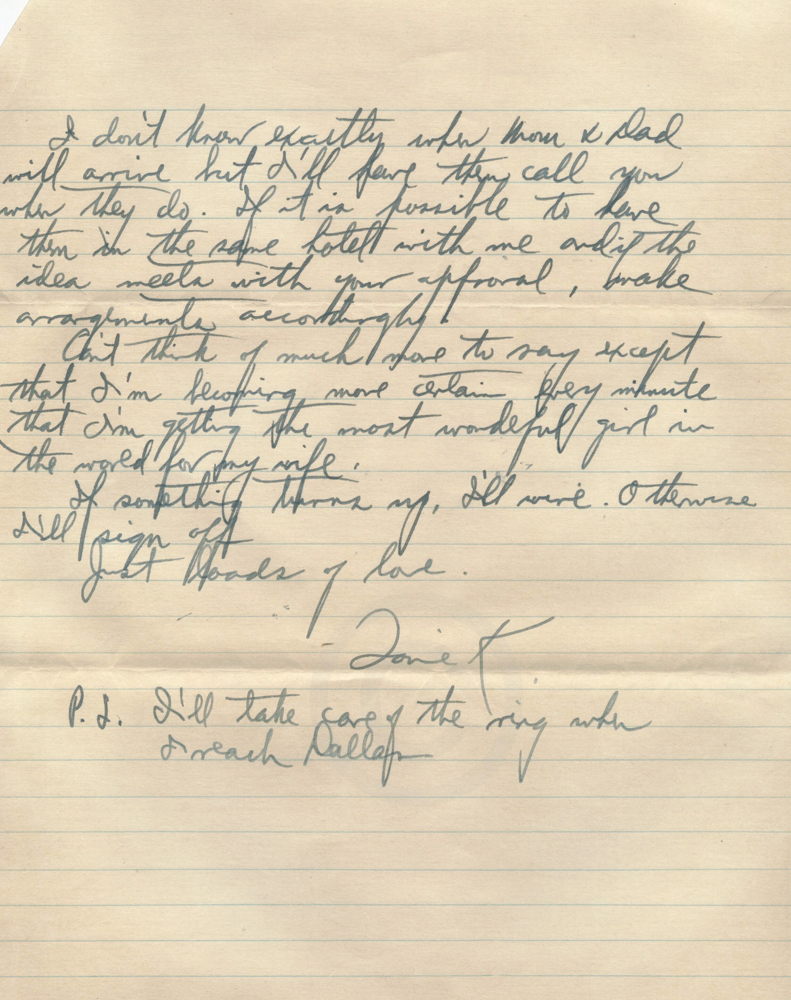 I don't know exactly when Mom & Dad
will arrive but I'll have them call you
when they do. If it is possible to have
them in the same hotel with me and if the
idea meets with your approval, make
arrangements accordingly.
Can't think of much more to say except
that I'm becoming more certain every minute
that I'm getting the most wonderful girl in
the world for my wife.
If something turns up, I'll wire. Otherwise
I'll sign off
Just loads of love.
K
P.S. I'll take care of the ring when
I reach Dallas